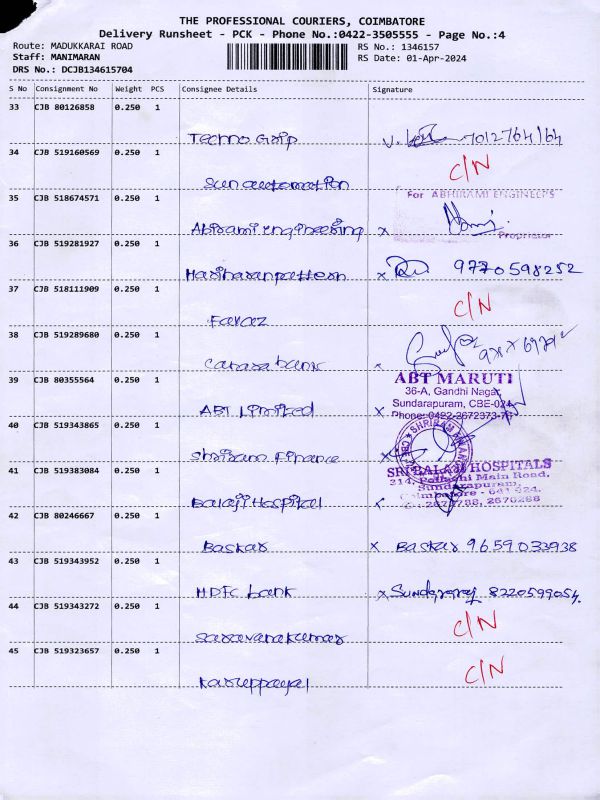 THE PROFESSIONAL COURIERS, COIMBATORE
Delivery Runsheet - PCK - Phone No.:0422-3505555 - Page No.:4
Route: MADUKKARAI ROAD RS No.: 1346157
Staff: MANIMARAN RS Date: 01-Apr-2024
DRS No.: DCJB134615704
S No Consignment No Weight PCS Consignee Details Signature
33 CJB 80126858 0.250 1
Techno Grip V. 7012764164
34 CJB 519160569 0.250 1 C/N
Sun automation
35 CJB 518674571 0.250 1 For ABHIRAMI ENGINEERS
Abirami engineering x Proprietor
36 CJB 519281927 0.250 1
Hariharan pattern x 9770598252
37 CJB 518111909 0.250 1 C/N
Favaz
38 CJB 519289680 0.250 1
Canara bank x
39 CJB 80355564 0.250 1 ABT MARUTI
36-A, Gandhi Nagar,
Sundarapuram, CBE-024
ABT Limited x Phone: 0422-2672373-
40 CJB 519343865 0.250 1
Shriram Finance x
41 CJB 519383084 0.250 1 SRI BALAJI HOSPITALS
214, Pollachi Main Road,
Sundarapuram,
Coimbatore - 641 024.
Balaji Hospital x 2676288
42 CJB 80246667 0.250 1
Baskar x Baskar 9659033938
43 CJB 519343952 0.250 1
HDFC bank x Sundararaj 8220599054.
44 CJB 519343272 0.250 1 C/N
Saravanakumar
45 CJB 519323657 0.250 1 C/N
Karuppayal